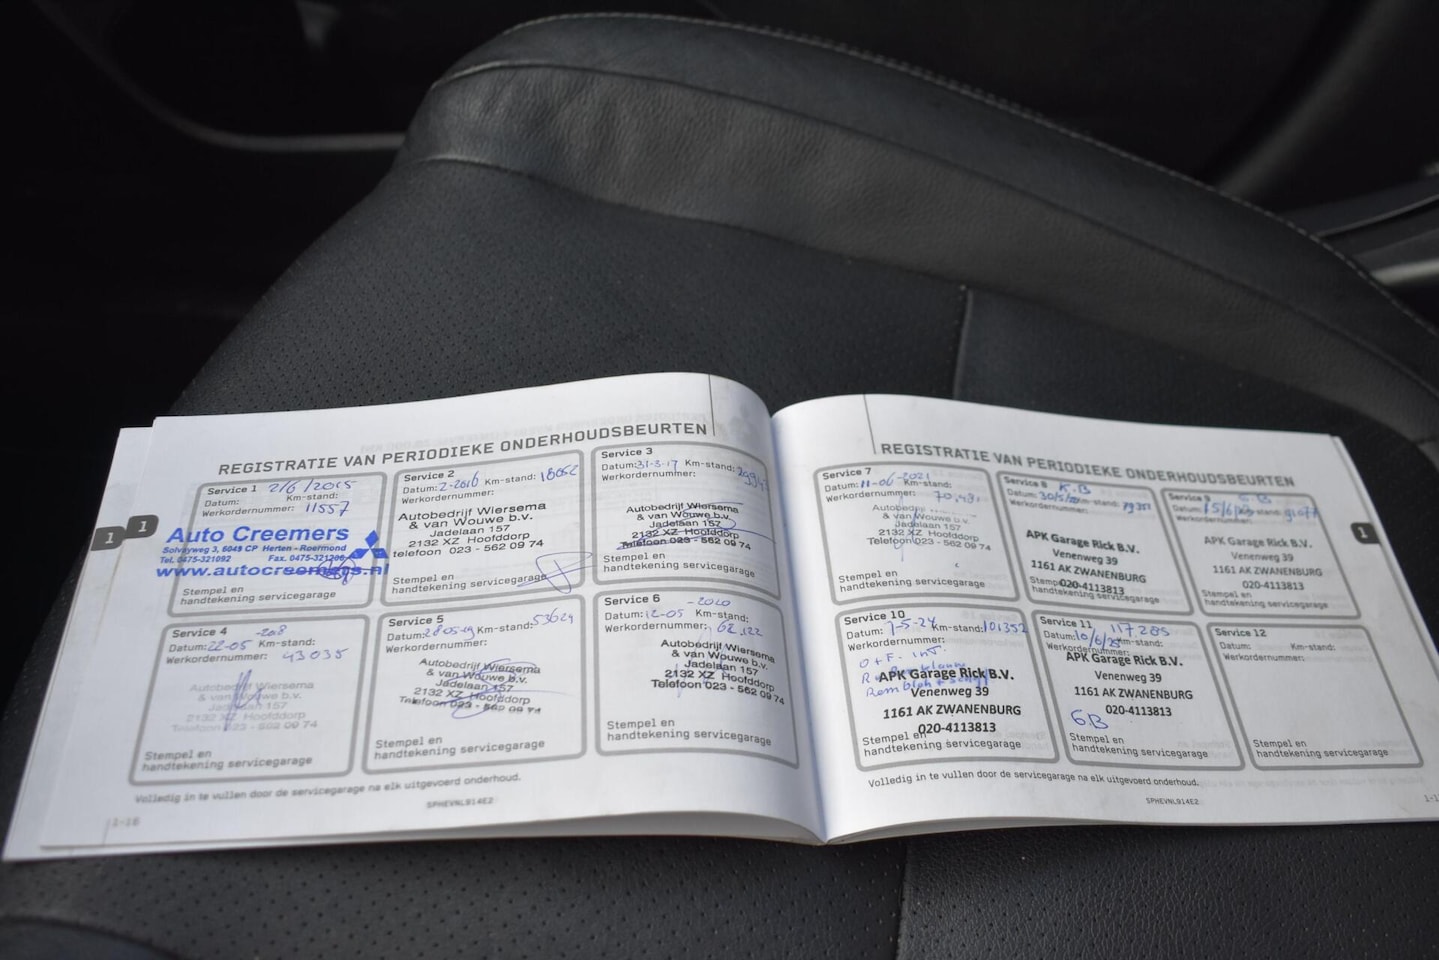 REGISTRATIE VAN PERIODIEKE ONDERHOUDSBEURTEN
1
1
Service 1 2/6/2015
Datum: Km-stand:
Werkordernummer: 11557
Auto Creemers
Solvayweg 3, 6049 CP Herten - Roermond
Tel. 0475-321092 Fax. 0475-321206
www.autocreemers.nl
Stempel en
handtekening servicegarage
Service 2
Datum: 2-2016 Km-stand: 18052
Werkordernummer:
Autobedrijf Wiersema
& van Wouwe b.v.
Jadelaan 157
2132 XZ Hoofddorp
telefoon 023 - 562 09 74
Stempel en
handtekening servicegarage
Service 3
Datum: 31-3-17 Km-stand:
Werkordernummer:
Autobedrijf Wiersema
& van Wouwe b.v.
Jadelaan 157
2132 XZ Hoofddorp
Telefoon 023 - 562 09 74
Stempel en
handtekening servicegarage
Service 4 -2018
Datum: 22-05 Km-stand:
Werkordernummer: 43035
Autobedrijf Wiersema
& van Wouwe b.v.
Jadelaan 157
2132 XZ Hoofddorp
Telefoon 023 - 562 09 74
Stempel en
handtekening servicegarage
Service 5
Datum: 28-05-19 Km-stand: 53629
Werkordernummer:
Autobedrijf Wiersema
& van Wouwe b.v.
Jadelaan 157
2132 XZ Hoofddorp
Telefoon 023 - 562 09 74
Stempel en
handtekening servicegarage
Service 6 -2020
Datum: 12-05 Km-stand:
Werkordernummer: 62,122
Autobedrijf Wiersema
& van Wouwe b.v.
Jadelaan 157
2132 XZ Hoofddorp
Telefoon 023 - 562 09 74
Stempel en
handtekening servicegarage
Volledig in te vullen door de servicegarage na elk uitgevoerd onderhoud.
SPHEVNL914E2
1-16
REGISTRATIE VAN PERIODIEKE ONDERHOUDSBEURTEN
1
Service 7
Datum: 11-06-2021 Km-stand:
Werkordernummer: 70,431
Autobedrijf Wiersema
& van Wouwe b.v.
Jadelaan 157
2132 XZ Hoofddorp
Telefoon 023 - 562 09 74
Stempel en
handtekening servicegarage
Service 8 K.B
Datum: 30/5/22 Km-stand: 79351
Werkordernummer:
APK Garage Rick B.V.
Venenweg 39
1161 AK ZWANENBURG
020-4113813
Stempel en
handtekening servicegarage
Service 9 G B
Datum: 15/6/23 Km-stand:
Werkordernummer:
APK Garage Rick B.V.
Venenweg 39
1161 AK ZWANENBURG
020-4113813
Stempel en
handtekening servicegarage
Service 10
Datum: 7-5-24 Km-stand: 101352
Werkordernummer:
O+F. INT.
APK Garage Rick B.V.
Venenweg 39
1161 AK ZWANENBURG
020-4113813
Stempel en
handtekening servicegarage
Service 11 117285
Datum: 10/6/25 Km-stand:
Werkordernummer:
APK Garage Rick B.V.
Venenweg 39
1161 AK ZWANENBURG
020-4113813
GB
Stempel en
handtekening servicegarage
Service 12
Datum: Km-stand:
Werkordernummer:
Stempel en
handtekening servicegarage
Volledig in te vullen door de servicegarage na elk uitgevoerd onderhoud.
SPHEVNL914E2